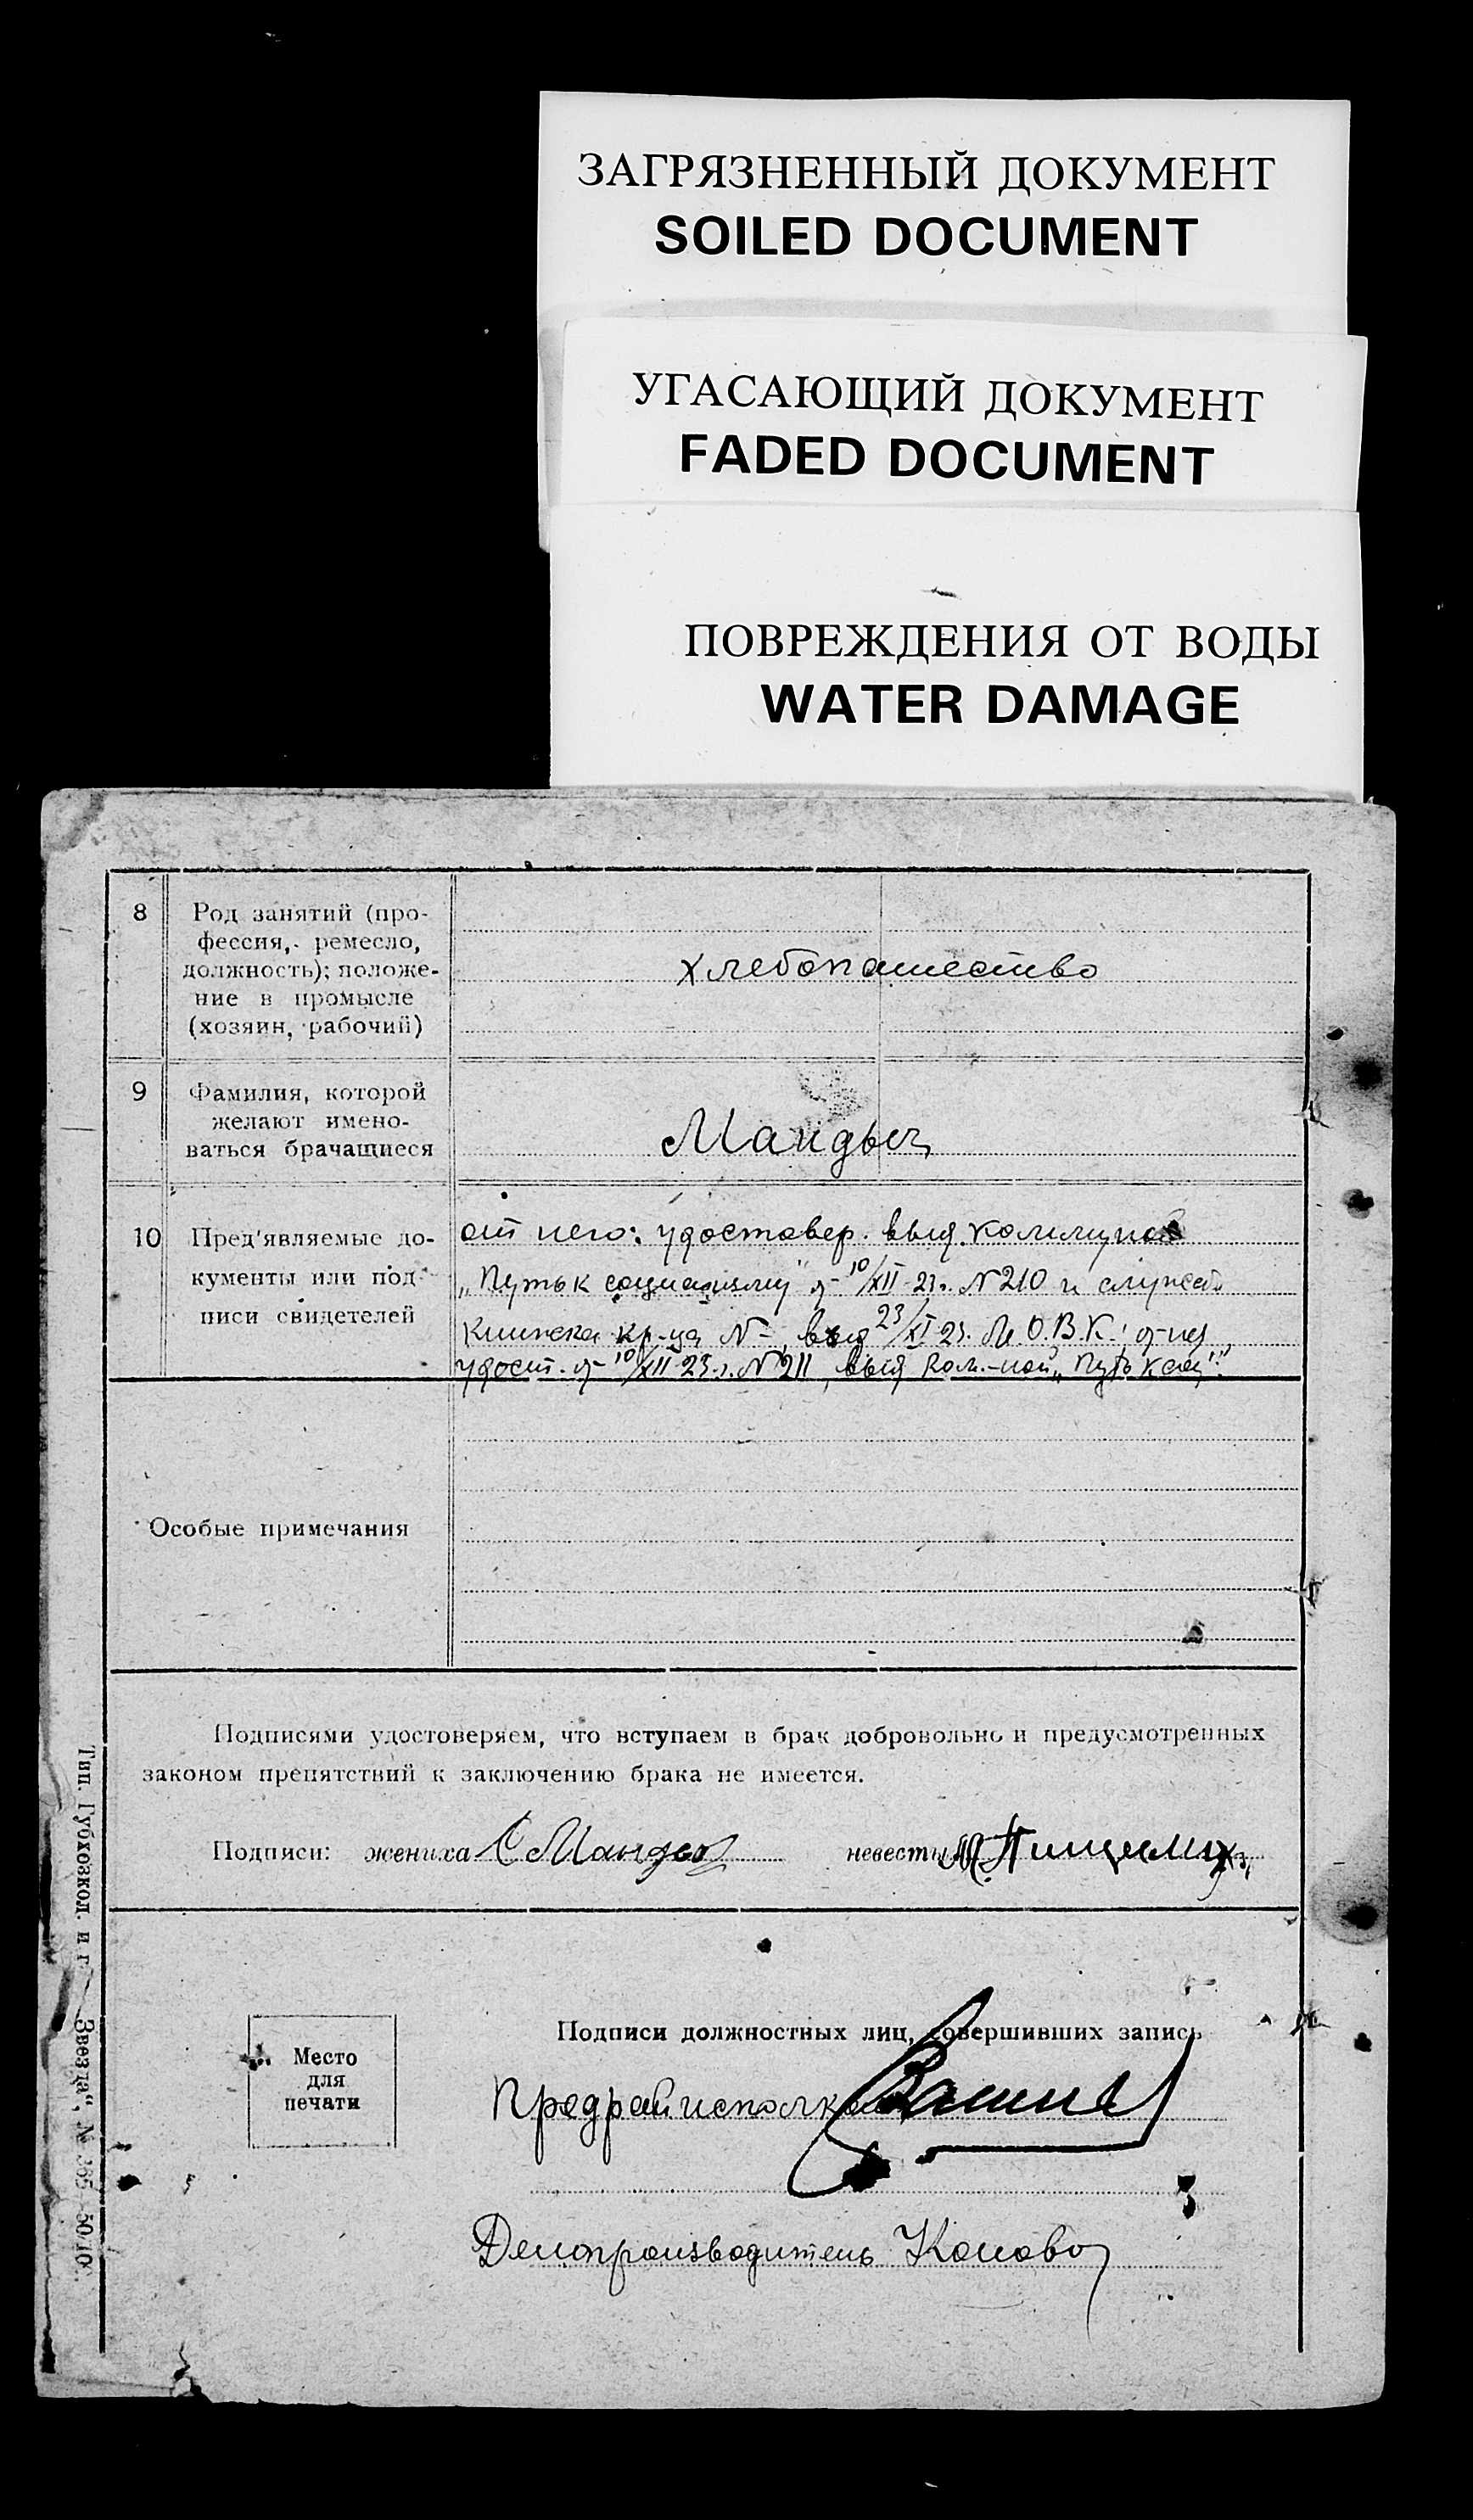 ЗАГРЯЗНЕННЫЙ ДОКУМЕНТ
SOILED DOCUMENT
УГАСАЮЩИЙ ДОКУМЕНТ
FADED DOCUMENT
ПОВРЕЖДЕНИЯ ОТ ВОДЫ
WATER DAMAGE
8 Род занятий (про-
фессия, ремесло,
должность); положе-
ние в промысле
(хозяин, рабочий)
хлебопашество
9 Фамилия, которой
желают имено-
ваться брачащиеся
Мандыч
10 Пред'являемые до-
кументы или под-
писи свидетелей
от него: удостовер. выд. коммуной
„Путь к социализму" от 10/XII-23г. N 210 и служеб.
книжка кр-ца N-, выд 23/XI 23. М.О.В.К.;
удост. от 10/XII-23г. N 211, выд ком-ной „Путь к соц".
Особые примечания
Подписями удостоверяем, что вступаем в брак добровольно и предусмотренных
законом препятствий к заключению брака не имеется.
Подписи: жениха С Мандыч невесты
Место
для
печати
Подписи должностных лиц, совершивших запись
Предрайисполкома
Делопроизводитель
Тип. Губхозкол. и г Звезда", № 365—50/10